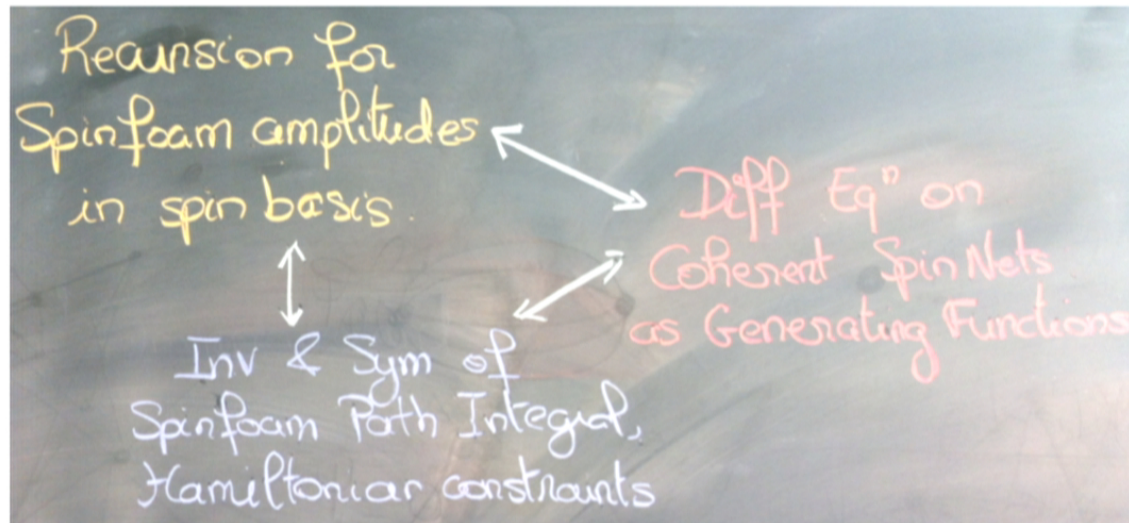 Recursion for
Spinfoam amplitudes
in spin basis.
Diff Eqⁿ on
Coherent Spin Nets
as Generating Functions
Inv & Sym of
Spinfoam Path Integral,
Hamiltonian constraints